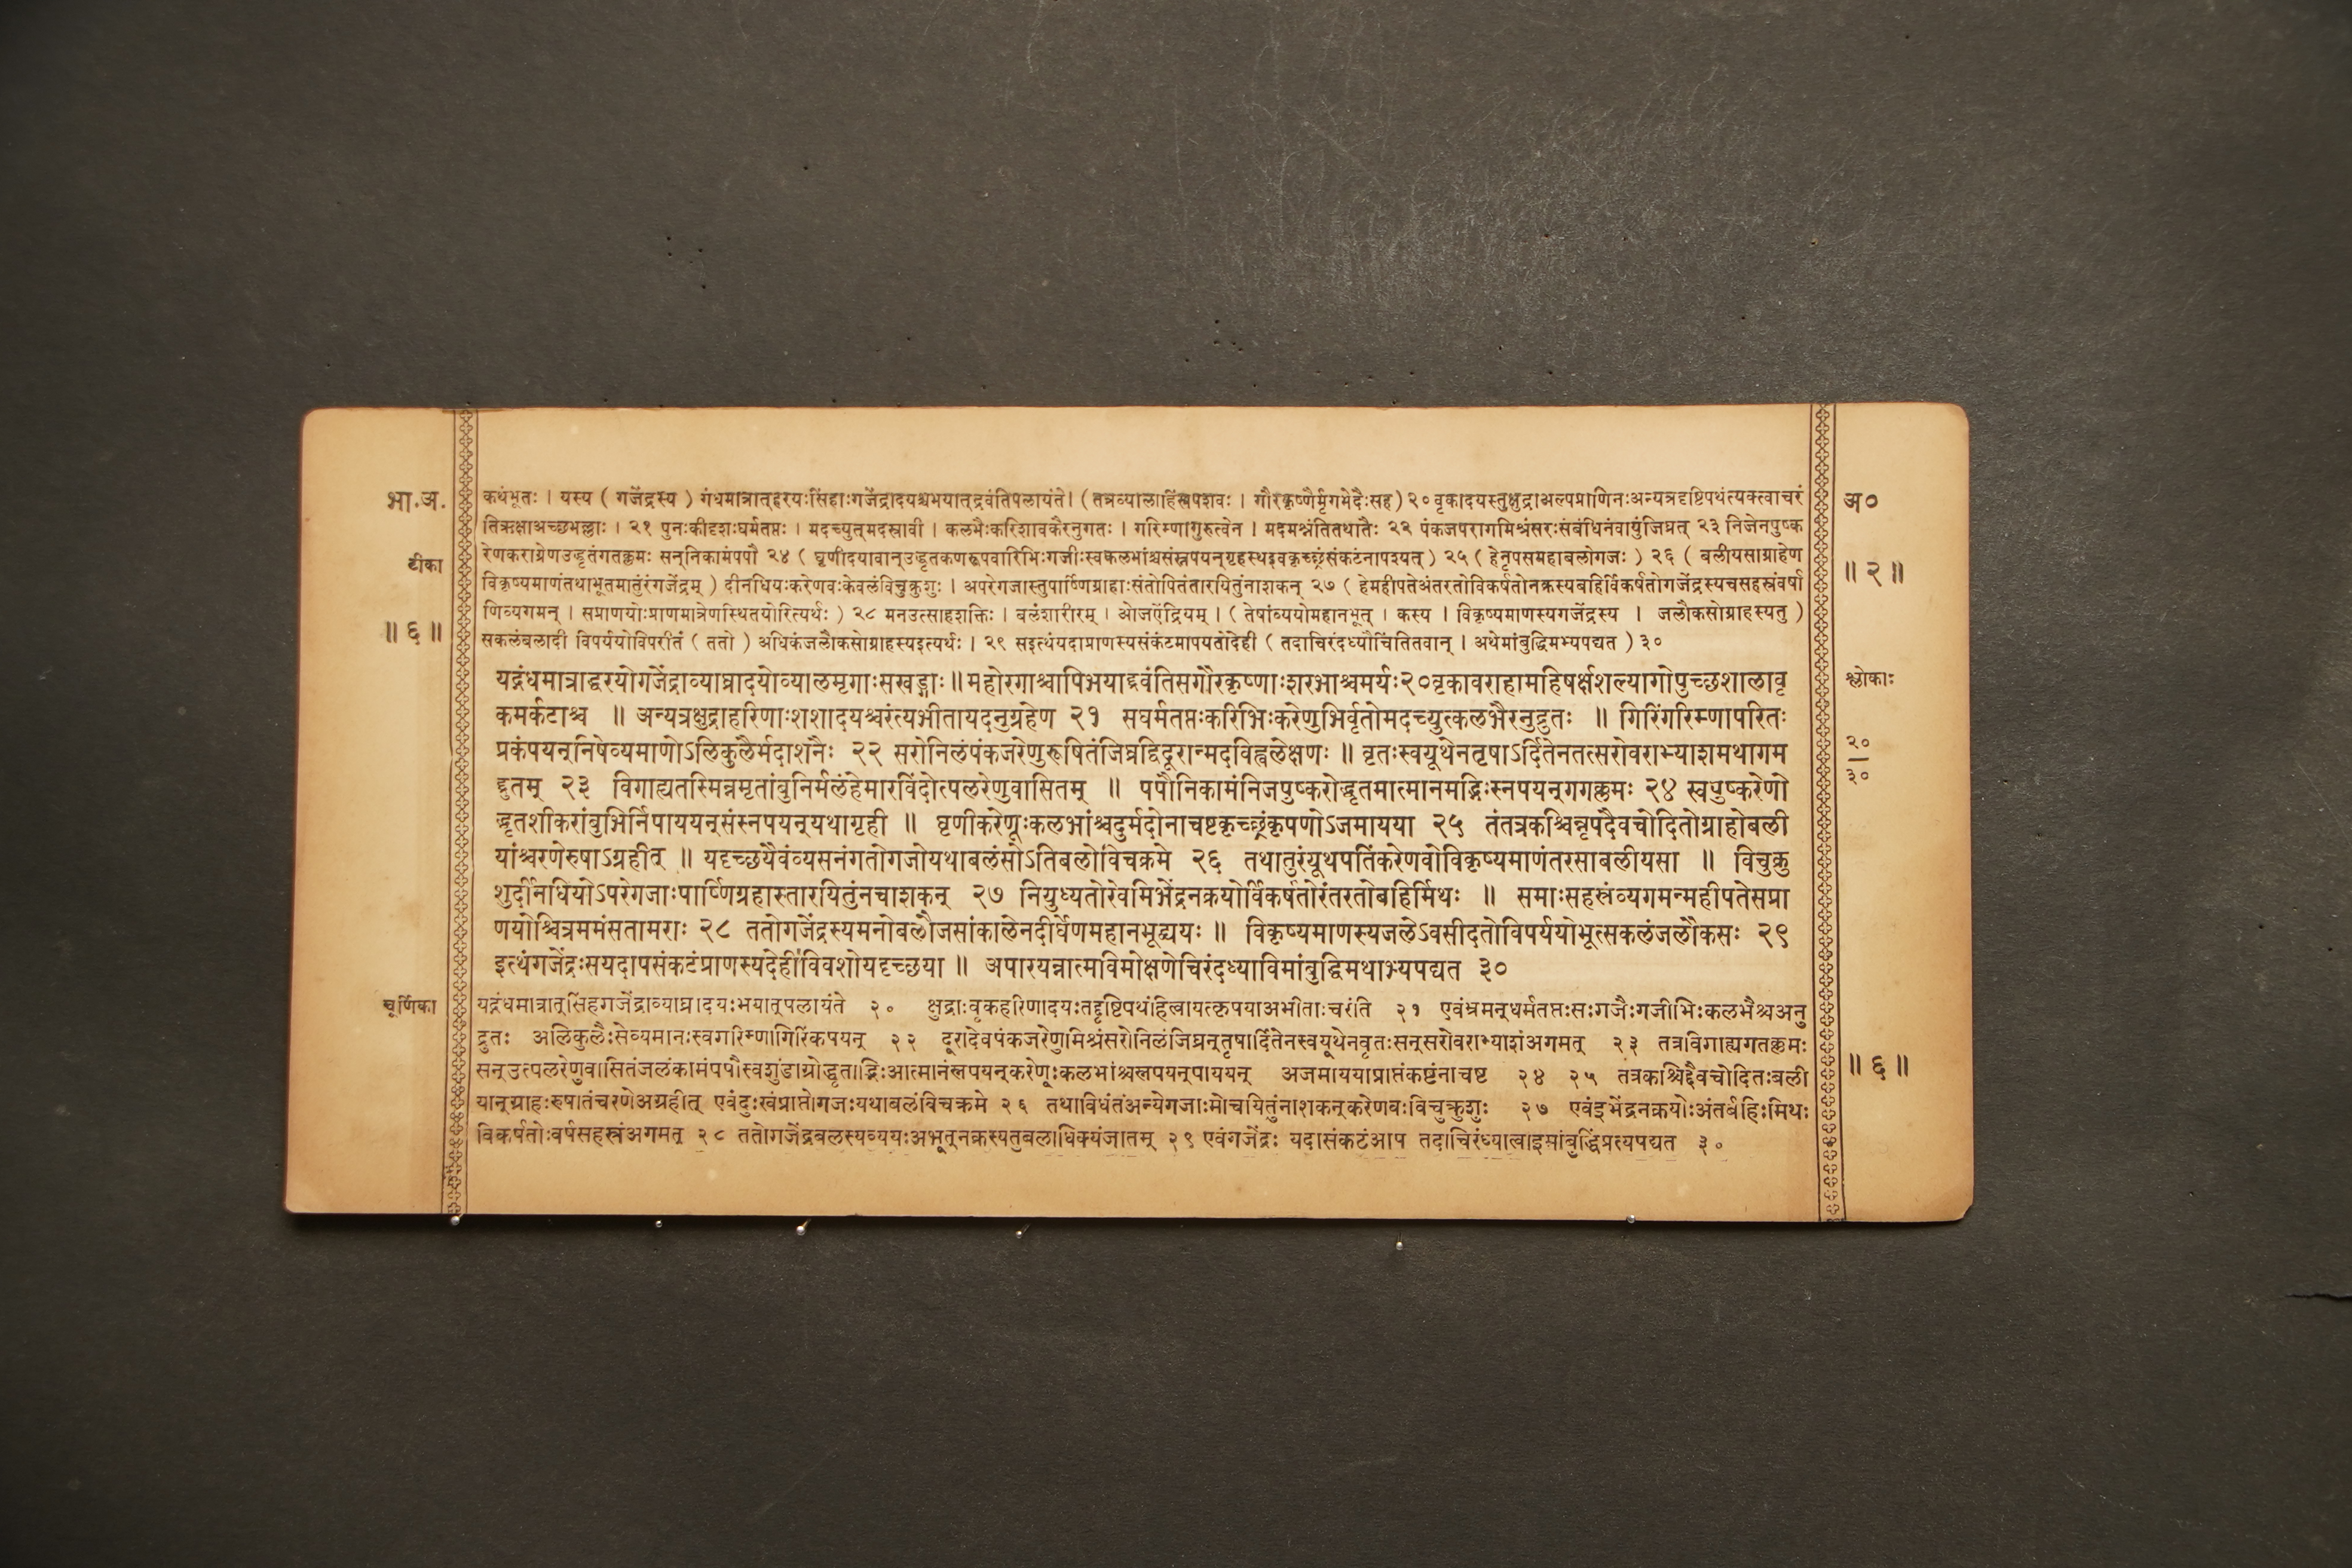 भा.अ.
टीका
॥ ६ ॥
कथंभूतः । यस्य ( गजेंद्रस्य ) गंधमात्रात्हरयःसिंहाःगजेंद्रादयश्चभयात्द्रवंतिपलायंते। (तत्रव्यालाहिंस्रपशवः । गौरकृष्णैर्मृगभेदैःसह) २० वृकादयस्तुक्षुद्राअल्पप्राणिनःअन्यत्रदृष्टिपथंत्यक्त्वाचरं
तिऋक्षाअच्छभल्लाः । २१ पुनःकीदृशःघर्मतप्तः । मदच्युत्मदस्रावी । कलभैःकरिशावकैरनुगतः । गरिम्णागुरुत्वेन । मदमश्नंतितथातैः २२ पंकजपरागमिश्रंसरःसंबंधिनंवायुंजिघ्रत् २३ निजेनपुष्क
रेणकराग्रेणउद्धृतंगतक्लमः सन्निकामंपपौ २४ ( घृणीदयावान्उद्धृतकणरूपवारिभिःगजीःस्वकलभांश्चसंस्नपयन्गृहस्थइवकृच्छ्रंसंकटंनापश्यत् ) २५ ( हेनृपसमहाबलोगजः ) २६ ( बलीयसाग्राहेण
विकृष्यमाणंतथाभूतमातुरंगजेंद्रम् ) दीनधियःकरेणवःकेवलंविचुक्रुशुः । अपरेगजास्तुपार्ष्णिग्राहाःसंतोपितंतारयितुंनाशकन् २७ ( हेमहीपतेअंतरतोविकर्षतोनक्रस्यबहिर्विकर्षतोगजेंद्रस्यचसहस्रंवर्षा
णिव्यगमन् । सप्राणयोःप्राणमात्रेणस्थितयोरित्यर्थः ) २८ मनउत्साहशक्तिः । बलंशारीरम् । ओजऐंद्रियम् । ( तेषांव्ययोमहानभूत् । कस्य । विकृष्यमाणस्यगजेंद्रस्य । जलौकसोग्राहस्यतु )
सकलंबलादी विपर्ययोविपरीतं ( ततो ) अधिकंजलौकसोग्राहस्यइत्यर्थः । २९ सइत्थंयदाप्राणस्यसंकटमापयतोदेही ( तदाचिरंदध्यौचिंतितवान् । अथेमांबुद्धिमभ्यपद्यत ) ३०
यद्गंधमात्राद्धरयोगजेंद्राव्याघ्रादयोव्यालमृगाःसखड्गाः ॥ महोरगाश्चापिभयाद्द्रवंतिसगौरकृष्णाःशरभाश्चमर्यः२०वृकावराहामहिषर्क्षशल्यागोपुच्छशालावृ
कमर्कटाश्च ॥ अन्यत्रक्षुद्राहरिणाःशशादयश्चरंत्यभीतायदनुग्रहेण २१ सघर्मतप्तःकरिभिःकरेणुभिर्वृतोमदच्युत्कलभैरनुद्रुतः ॥ गिरिंगरिम्णापरितः
प्रकंपयन्निषेव्यमाणोऽलिकुलैर्मदाशनैः २२ सरोनिलंपंकजरेणुरूषितंजिघ्रद्विदूरान्मदविह्वलेक्षणः ॥ वृतःस्वयूथेनतृषाऽर्दितेनतत्सरोवराभ्याशमथागम
द्द्रुतम् २३ विगाह्यतस्मिन्नमृतांबुनिर्मलंहेमारविंदोत्पलरेणुवासितम् ॥ पपौनिकामंनिजपुष्करोद्धृतमात्मानमद्भिःस्नपयन्गगक्लमः २४ स्वपुष्करेणो
द्धृतशीकरांबुभिर्निपाययन्संस्नपयन्यथागृही ॥ घृणीकरेणूःकलभांश्चदुर्मदोनाचष्टकृच्छ्रंकृपणोऽजमायया २५ तंतत्रकश्चिन्नृपदैवचोदितोग्राहोबली
यांश्चरणेरुषाऽग्रहीत् ॥ यदृच्छयैवंव्यसनंगतोगजोयथाबलंसोऽतिबलोविचक्रमे २६ तथातुरंयूथपतिंकरेणवोविकृष्यमाणंतरसाबलीयसा ॥ विचुक्रु
शुर्दीनधियोऽपरेगजाःपार्ष्णिग्रहास्तारयितुंनचाशकन् २७ नियुध्यतोरेवमिभेंद्रनक्रयोर्विकर्षतोरंतरतोबहिर्मिथः ॥ समाःसहस्रंव्यगमन्महीपतेसप्रा
णयोश्चित्रममंसतामराः २८ ततोगजेंद्रस्यमनोबलौजसांकालेनदीर्घेणमहानभूद्व्ययः ॥ विकृष्यमाणस्यजलेऽवसीदतोविपर्ययोभूत्सकलंजलौकसः २९
इत्थंगजेंद्रःसयदापसंकटंप्राणस्यदेहीविवशोयदृच्छया ॥ अपारयन्नात्मविमोक्षणेचिरंदध्याविमांबुद्धिमथाभ्यपद्यत ३०
चूर्णिका
यद्गंधमात्रात्सिंहगजेंद्राव्याघ्रादयःभयात्पलायंते २० क्षुद्राःवृकहरिणादयःतद्दृष्टिपथंहित्वायत्कृपयाअभीताःचरंति २१ एवंभ्रमन्घर्मतप्तःसःगजैःगजीभिःकलभैश्चअनु
द्रुतः अलिकुलैःसेव्यमानःस्वगरिम्णागिरिंकंपयन् २२ दूरादेवपंकजरेणुमिश्रंसरोनिलंजिघ्रन्तृषार्दितेनस्वयूथेनवृतःसन्सरोवराभ्याशंअगमत् २३ तत्रविगाह्यगतक्लमः
सन्उत्पलरेणुवासितंजलंकामंपपौस्वशुंडाग्रोद्धृताद्भिःआत्मानंस्नपयन्करेणूःकलभांश्चस्नपयन्पाययन् अजमाययाप्राप्तंकष्टंनाचष्ट २४ २५ तत्रकश्चिद्दैवचोदितःबली
यान्ग्राहःरुषातंचरणेअग्रहीत् एवंदुःखंप्राप्तोगजःयथाबलंविचक्रमे २६ तथाविधंतंअन्येगजाःमोचयितुंनाशकन्करेणवःविचुक्रुशुः २७ एवंइभेंद्रनक्रयोःअंतर्बहिःमिथः
विकर्षतोःवर्षसहस्रंअगमत् २८ ततोगजेंद्रबलस्यव्ययःअभूत्नक्रस्यतुबलाधिक्यंजातम् २९ एवंगजेंद्रः यदासंकटंआप तदाचिरंध्यात्वाइमांबुद्धिंप्रत्यपद्यत ३०
अ०
॥ २ ॥
श्लोकाः
२०
३०
॥ ६ ॥